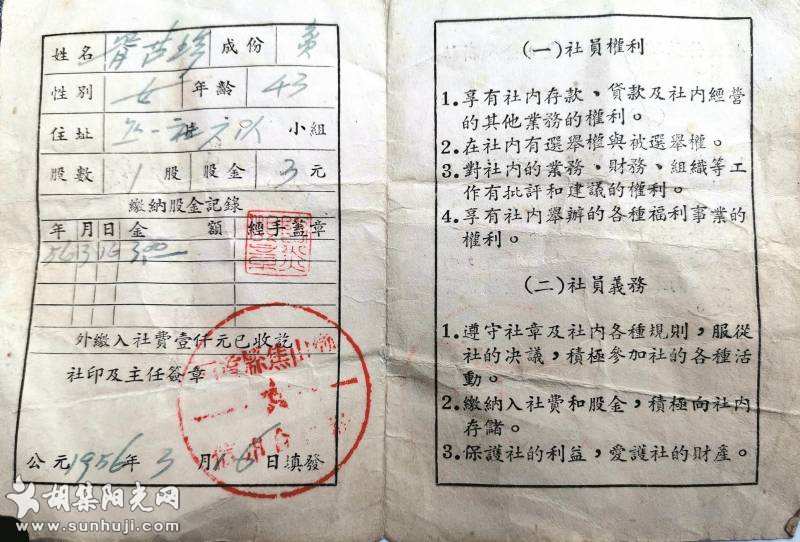 姓名 成份 貧
性別 女 年齡 43
住址 社 小組
股數 1 股 股金 3 元
繳納股金記錄
年 月 日 金 額 經手蓋章
56 3 16 3.00
外繳入社費壹仟元已收訖
社印及主任簽章
公元1956年3月16日填發
(一)社員權利
1.享有社内存款、貸款及社内經營
的其他業務的權利。
2.在社内有選舉權與被選舉權。
3.對社内的業務、財務、組織等工
作有批評和建議的權利。
4.享有社内舉辦的各種福利事業的
權利。
(二)社員義務
1.遵守社章及社内各種規則,服從
社的决議,積極参加社的各種活
動。
2.繳納入社費和股金,積極向社内
存儲。
3.保護社的利益,愛護社的財產。
胡集阳光网
www.sunhuji.com